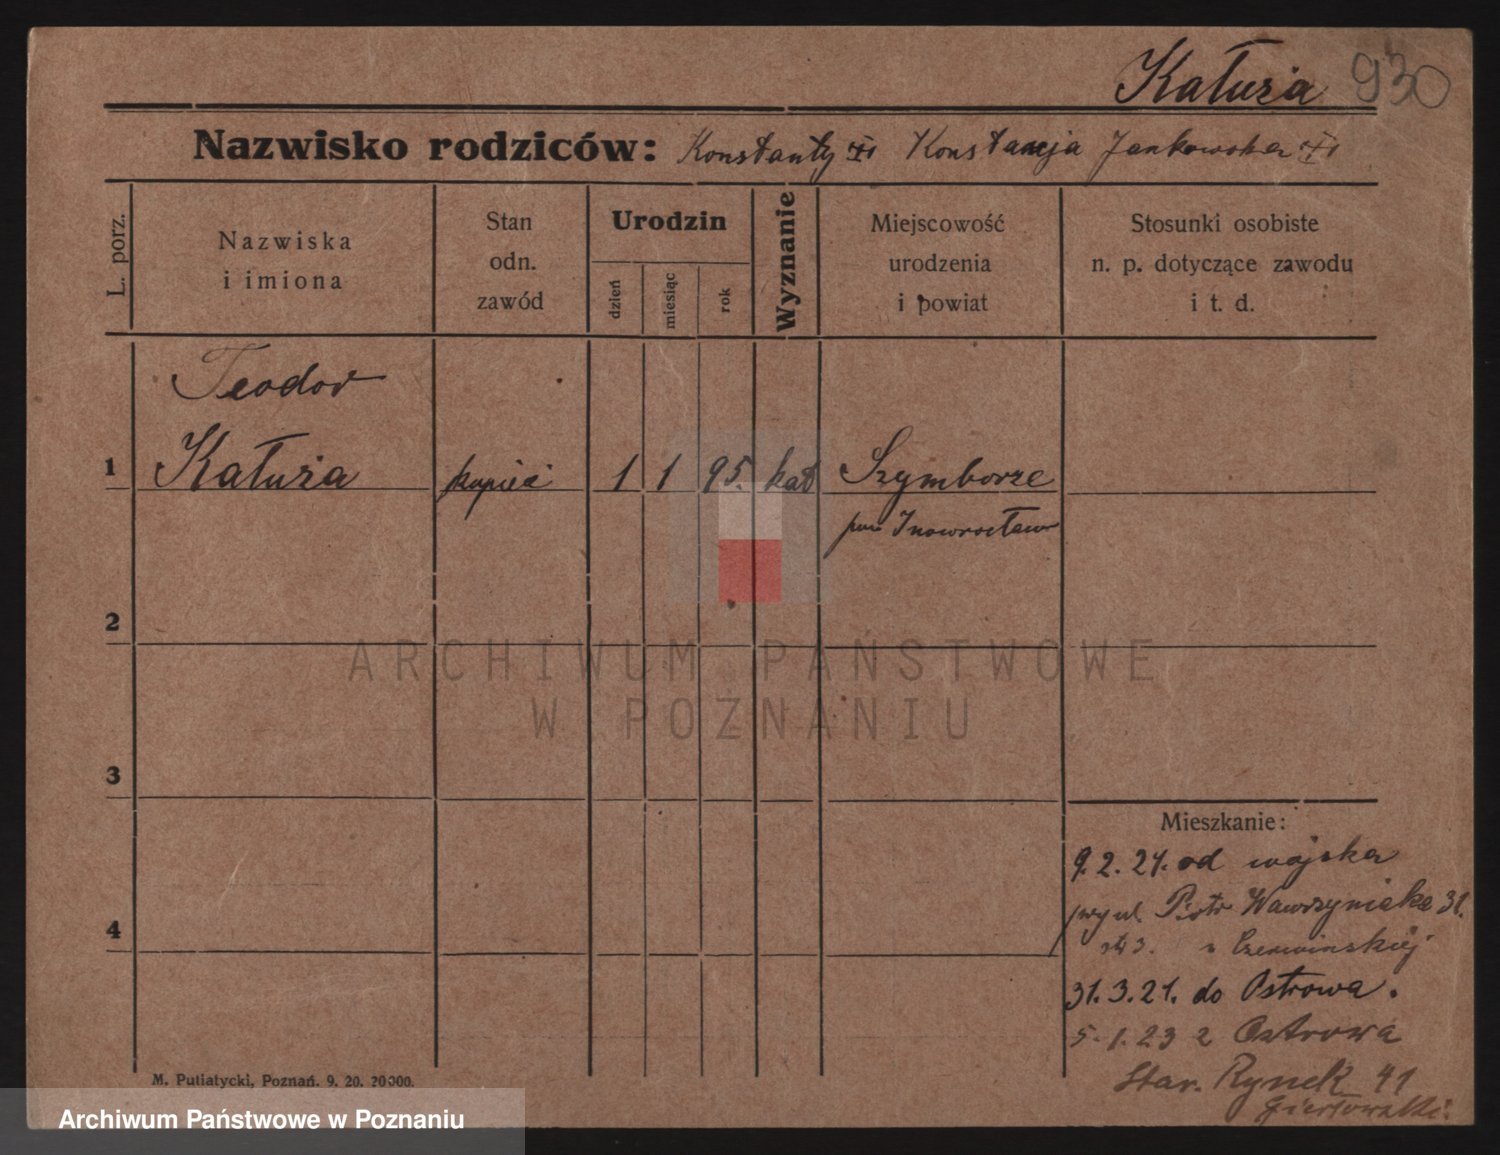 Kałuża 930
Nazwisko rodziców: Konstanty Konstancja Jankowska
L. porz.
Nazwiska
i imiona
Stan
odn.
zawód
Urodzin
dzień
miesiąc
rok
Wyznanie
Miejscowość
urodzenia
i powiat
Stosunki osobiste
n. p. dotyczące zawodu
i t. d.
Teodor
1 Kałuża kupiec 1 1 95. kat Szymborze
pow Inowrocław
2
ARCHIWUM PAŃSTWOWE
W POZNANIU
3
Mieszkanie:
9.2.21. od wojska
przy ul. Piotr Wawrzyniaka 31.
4
z Czerwinskiej
31.3.21. do Ostrowa.
5.1.23 z Ostrowa
Star. Rynek 41
M. Putiatycki, Poznań. 9. 20. 20000.
Archiwum Państwowe w Poznaniu